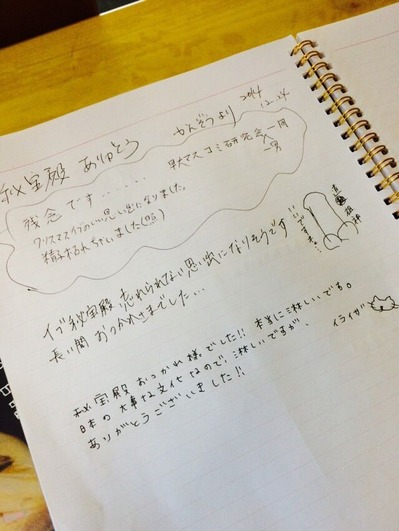 秘宝殿 ありがとう
かんぞうより 2014
12.24
残念です......
早大マスコミ研究会一同
一男
クリスマスイブのいい思い出になりました。
イブ秘宝殿、忘れられない思い出になりそうです
長い間 おつかれさまでした...
秘宝殿 おつかれ様でした!! 本当に淋しいです。
日本の大事な文化なので、淋しいですが、
ありがとうございました!!
イライザ